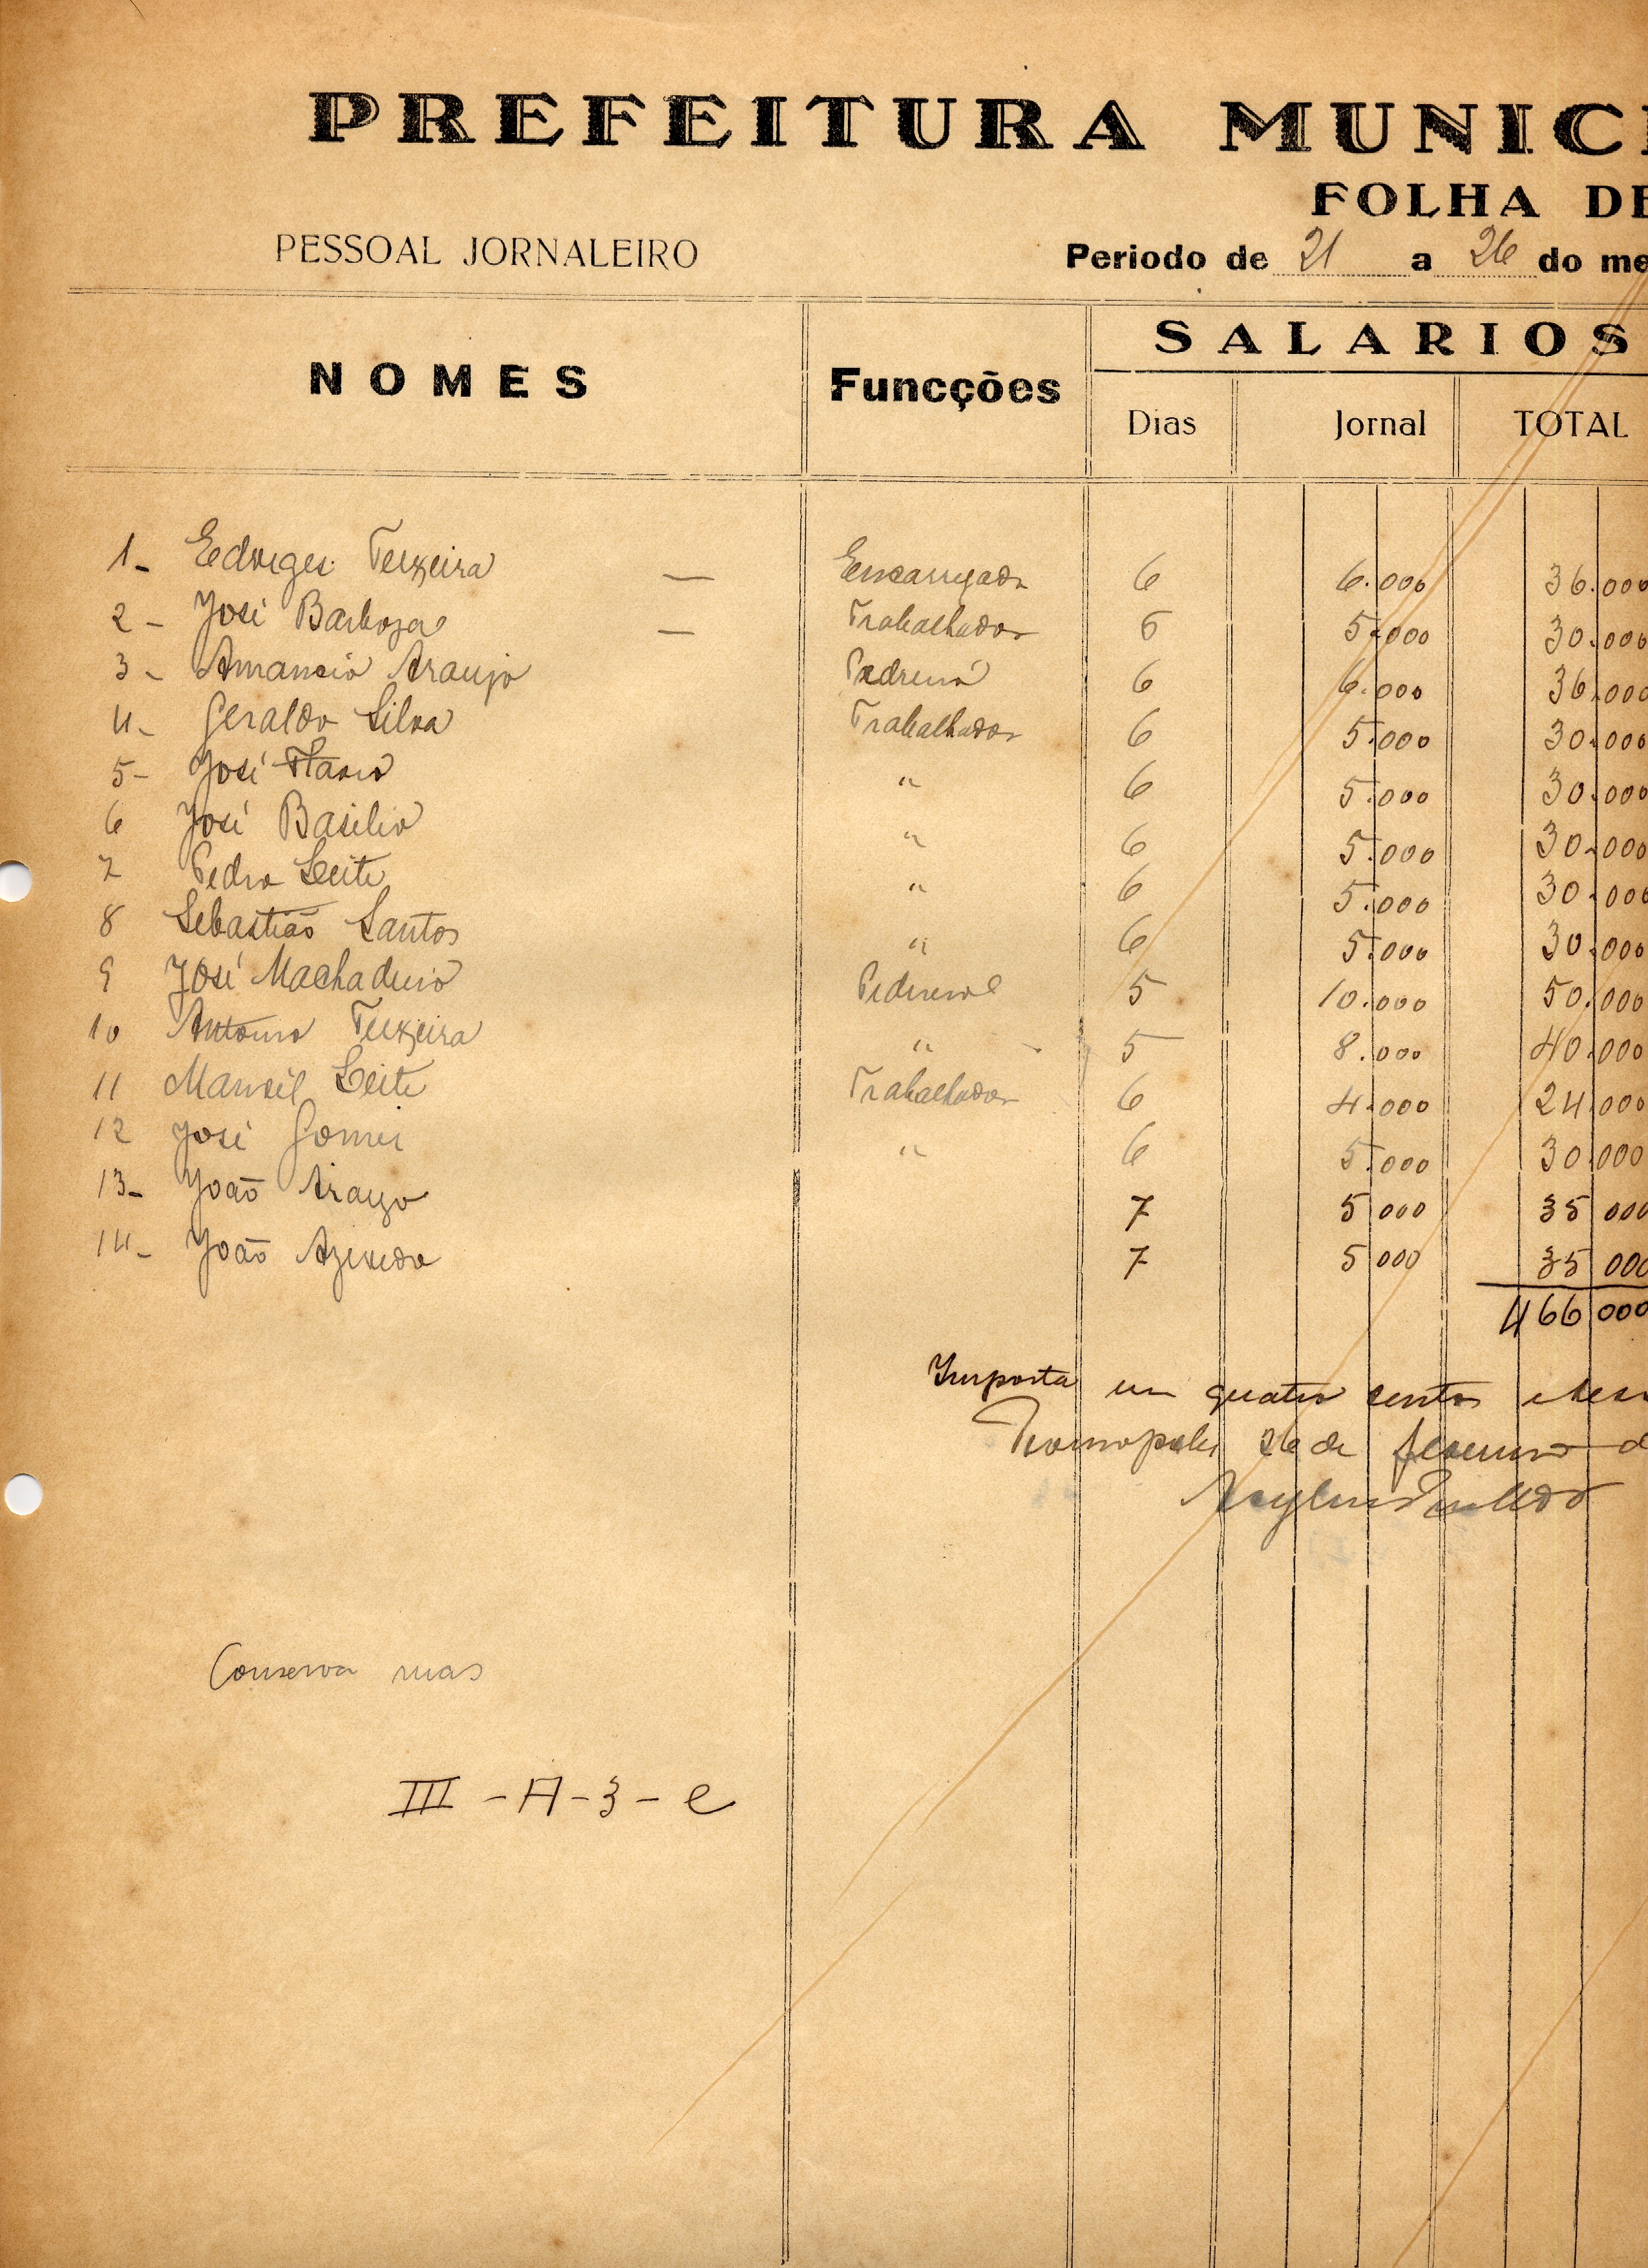 PREFEITURA MUNICI
FOLHA DE
PESSOAL JORNALEIRO Periodo de 21 a 26 do me
NOMES Funcções SALARIOS
Dias Jornal TOTAL
1- Edviges Teixeira — Encarregado 6 6.000 36.000
2- José Barbosa — Trabalhador 6 5.000 30.000
3- Amancio Araujo Pedreiro 6 6.000 36.000
4- Geraldo Silva Trabalhador 6 5.000 30.000
5- José " 6 5.000 30.000
6 José Basilio " 6 5.000 30.000
7 Pedro Leite " 6 5.000 30.000
8 Sebastião Santos " 6 5.000 30.000
9 José Machadeiro Pedreiro 5 10.000 50.000
10 Antonio Teixeira " 5 8.000 40.000
11 Leite Trabalhador 6 4.000 24.000
12 José Gomes " 6 5.000 30.000
13- João Araujo 7 5 000 35 000
14- João Azevedo 7 5 000 35 000
466 000
Importa em quatro centos e
26 de fevereiro d
Conserva ruas
III - A - 3 - e